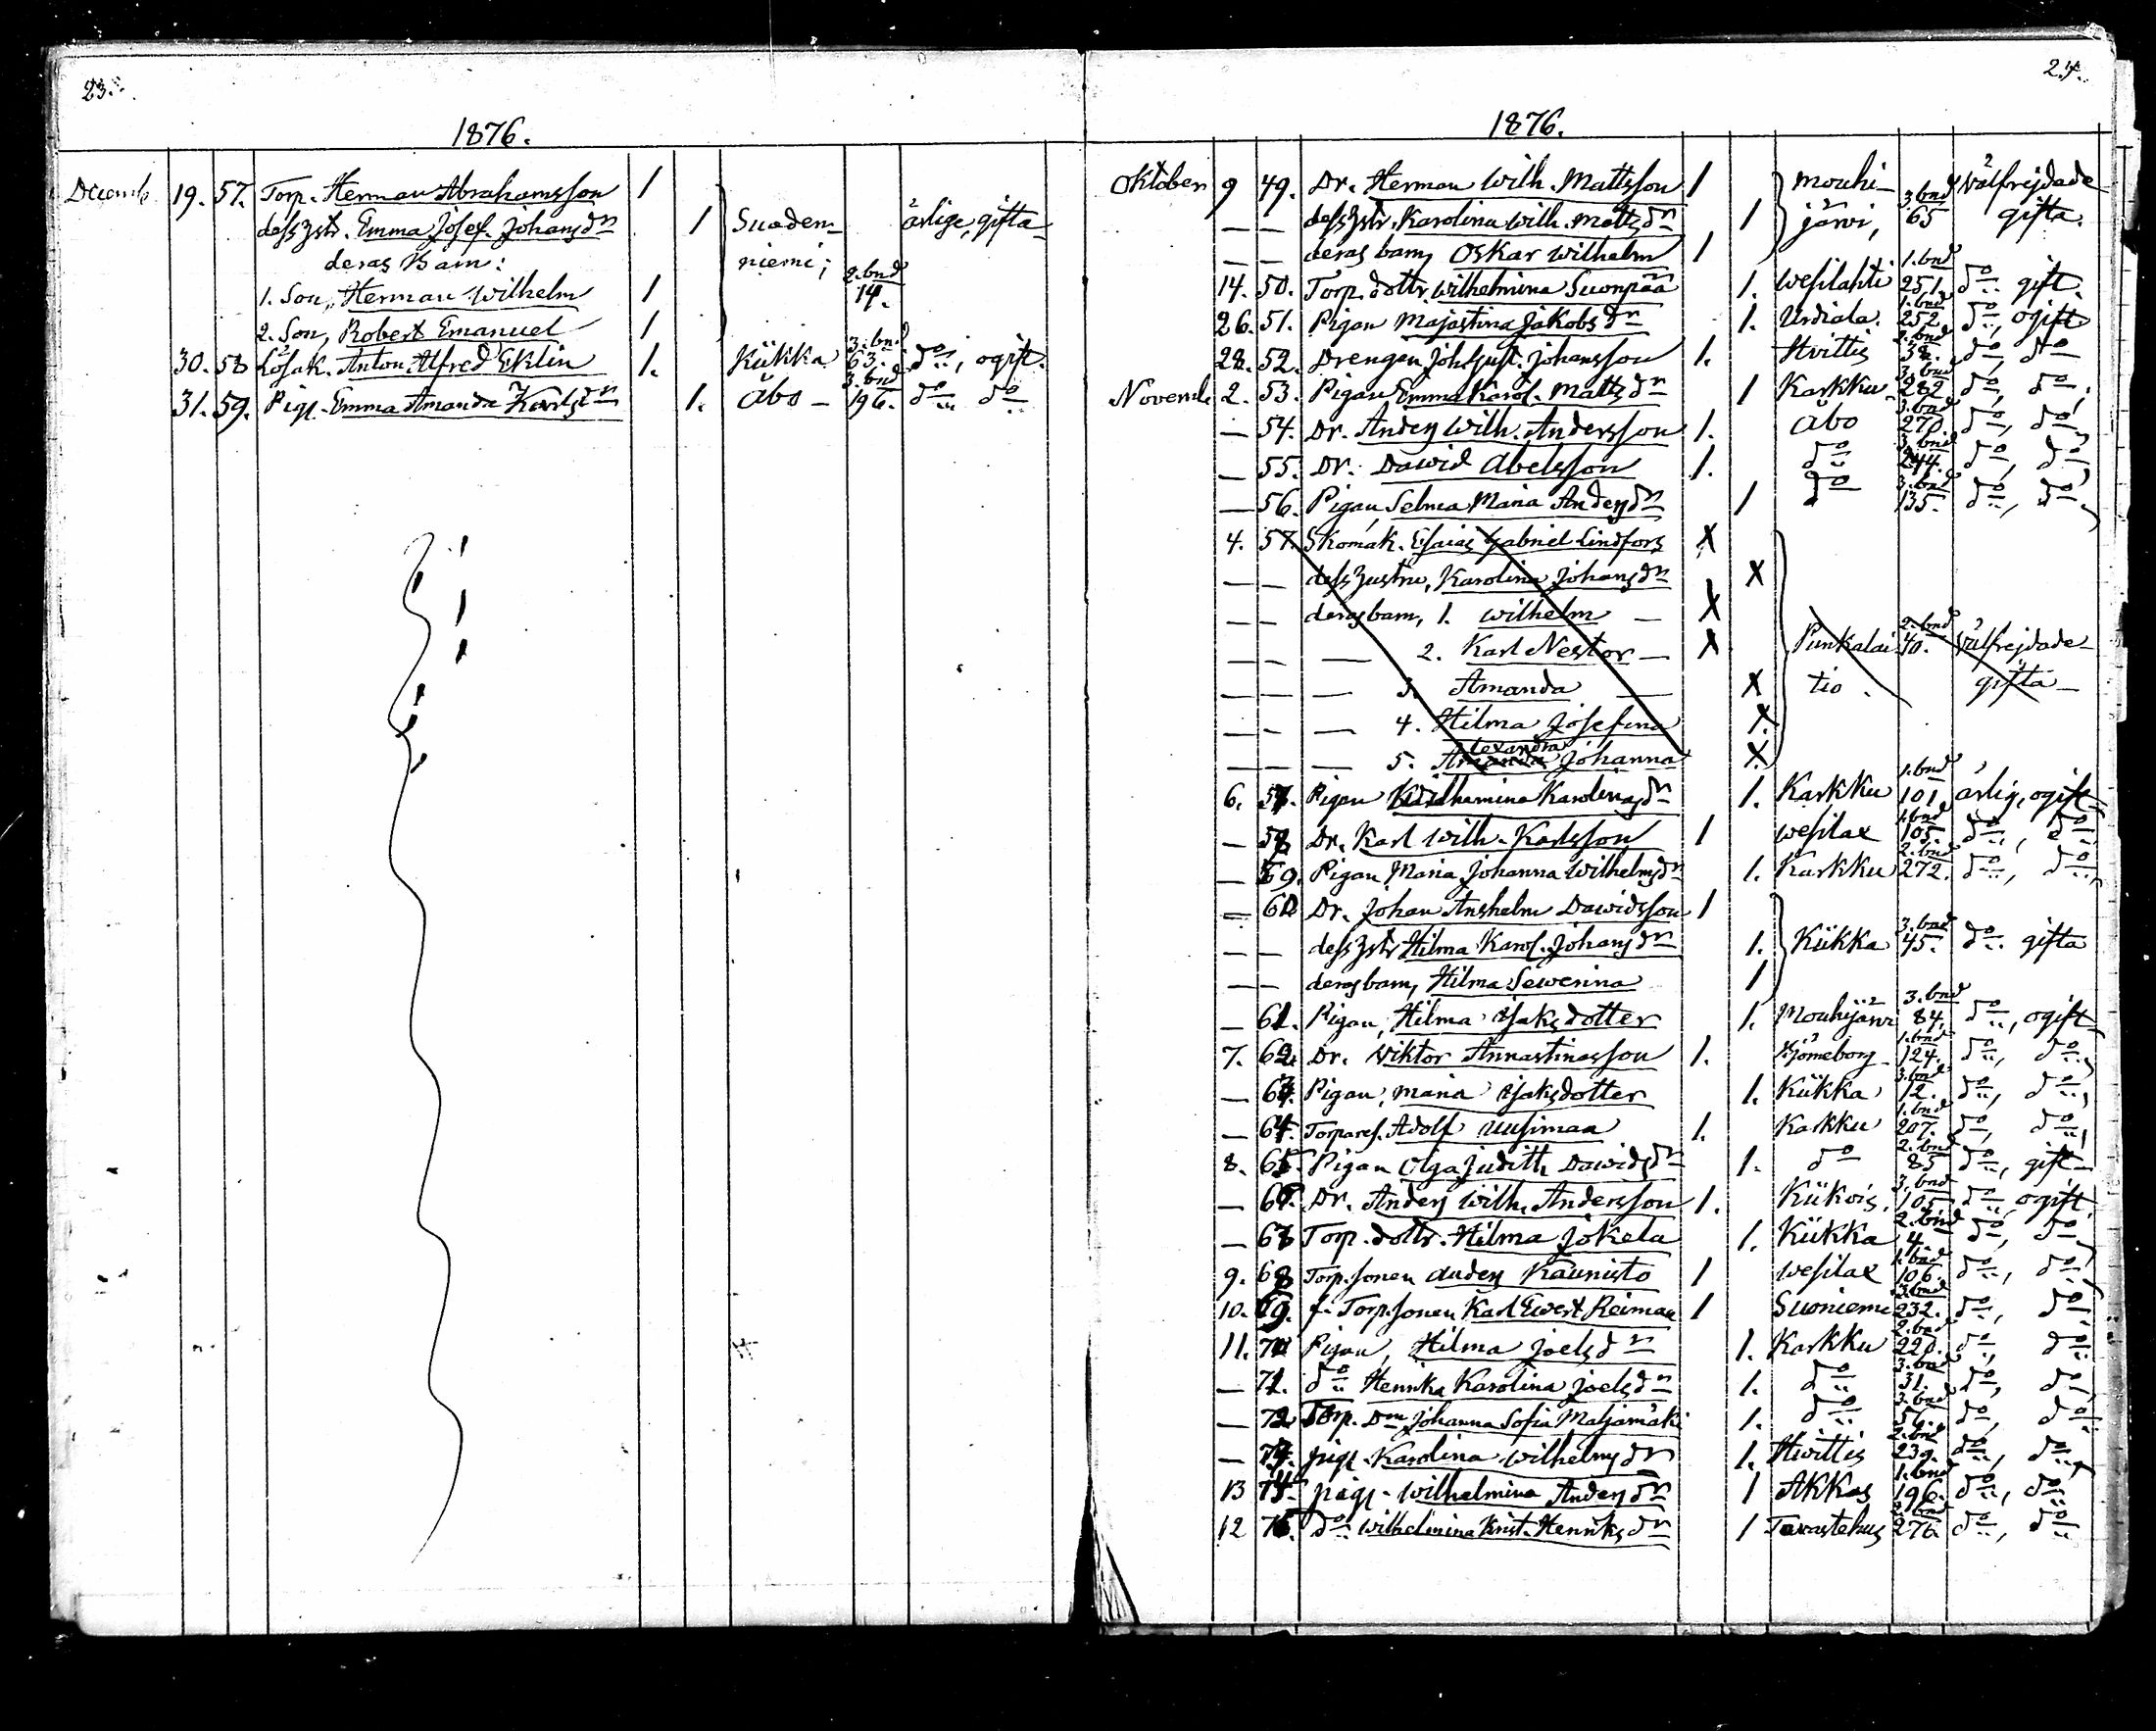 23.
1876.
Decemb. 19. 57. Torp. Herman Abrahamsson 1
dess hstr. Emma Josef. Johansdr 1 Suoden- ärlige, gifta
deras Barn: niemi; 2. bnd
1. Son, Herman Wilhelm 1 14.
2. Son, Robert Emanuel 1
30. 58 Lösak. Anton Alfred Eklin 1. Kiikka 3. bnd 63. do, ogift.
31. 59. Pig. Emma Amanda Karlsdr 1. Åbo 3. bnd 196. do do
24.
1876.
Oktober 9 49. Dr. Herman Wilh. Mattsson 1 Mouhi- 3 bnd Välfrejdade
— — dess hstr. Karolina Wilh. Mattsdr 1 järvi, 65 gifta.
— — deras barn, Oskar Wilhelm 1
14. 50. Torp. dottr. Wilhelmina Suonpää 1. Wesilahti 1. bnd 251. do gift.
26. 51. Pigan Majastina Jakobsdr 1. Urdiala. 1. bnd 252. do, ogift
28. 52. Drengen Joh. Gust. Johansson 1. Hvittis 38. do, do
Novemb. 2. 53. Pigan Emma Karol. Mattsdr 1 Karkku 3. bnd 282 do, do,
— 54. Dr. Anders Wilh. Andersson 1. Åbo 3. bnd 270. do, do
— 55. Dr. Dawid Abelsson 1. do 3. bnd 244. do, do
— 56. Pigan, Selma Maria Andersdr 1 do 3. bnd 135. do, do
4. 57. Skomak. Esaias Gabriel Lindfors X
— — dess hustru, Karolina Johansdr X
— — deras barn, 1. Wilhelm — X
— — — 2. Karl Nestor — X Punkalai- 2. bnd 40. Välfrejdade
— — — 3. Amanda — X tio. gifta
— — — 4. Hilma Josefina X
— — — 5. Alexandra Johanna X
6. 57. Pigan Wilhelmina Karolinasdr 1. Karkku 1. bnd 101. ärlig, ogift
— 58. Dr. Karl Wilh. Karlsson 1 Wesilax 1. bnd 105. do, do
— 59. Pigan Maria Johanna Wilhelmsdr 1. Karkku 2. bnd 272. do, do
— 60 Dr. Johan Anshelm Dawidsson 1
— — dess hstr Hilma Karol. Johansdr 1. Kiikka 3. bnd 45. do gifta
— — deras barn, Hilma Sewerina 1
— 61. Pigan, Hilma Isaksdotter 1. Mouhijärvi 3. bnd 84. do, ogift
7. 62. Dr. Wiktor Annastinasson 1. Björneborg 1. bnd 124. do, do
— 63. Pigan, Maria Isaksdotter 1. Kiikka 3. bnd 12. do, do
— 64. Torparef. Adolf Uusimaa 1. Karkku 1. bnd 207. do, do
8. 65. Pigan Olga Judith Dawidsdr 1. do 2. bnd 85 do, gift
— 66. Dr. Anders Wilh. Andersson 1. Kiikois. 3. bnd 105 do, ogift.
— 67 Torp. dottr. Hilma Jokela 1. Kiikka 2. bnd 4. do, do
9. 68 Torp. sonen Anders Kaunisto 1 Wesilax 1. bnd 106. do, do
10. 69. f. Torp. sonen Karl Ewert Reiman 1 Suoniemi 3. bnd 232. do, do
11. 70 Pigan, Hilma Joelsdr 1. Karkku 2. bnd 220. do, do
— 71. do Henrika Karolina Joelsdr 1. do 3. bnd 31. do, do
— 72 Torp. Dr Johanna Sofia Maljamäki 1. do 3. bnd do, do
— 73. pig. Karolina Wilhelmsdr 1. Hvittis 2. bnd 239. do, do
13 74. pig. Wilhelmina Andersdr 1 Akkas 1. bnd 196. do, do
12 75. do Wilhelmina Krist. Henriksdr 1 Tavastehus bnd 276. do, do